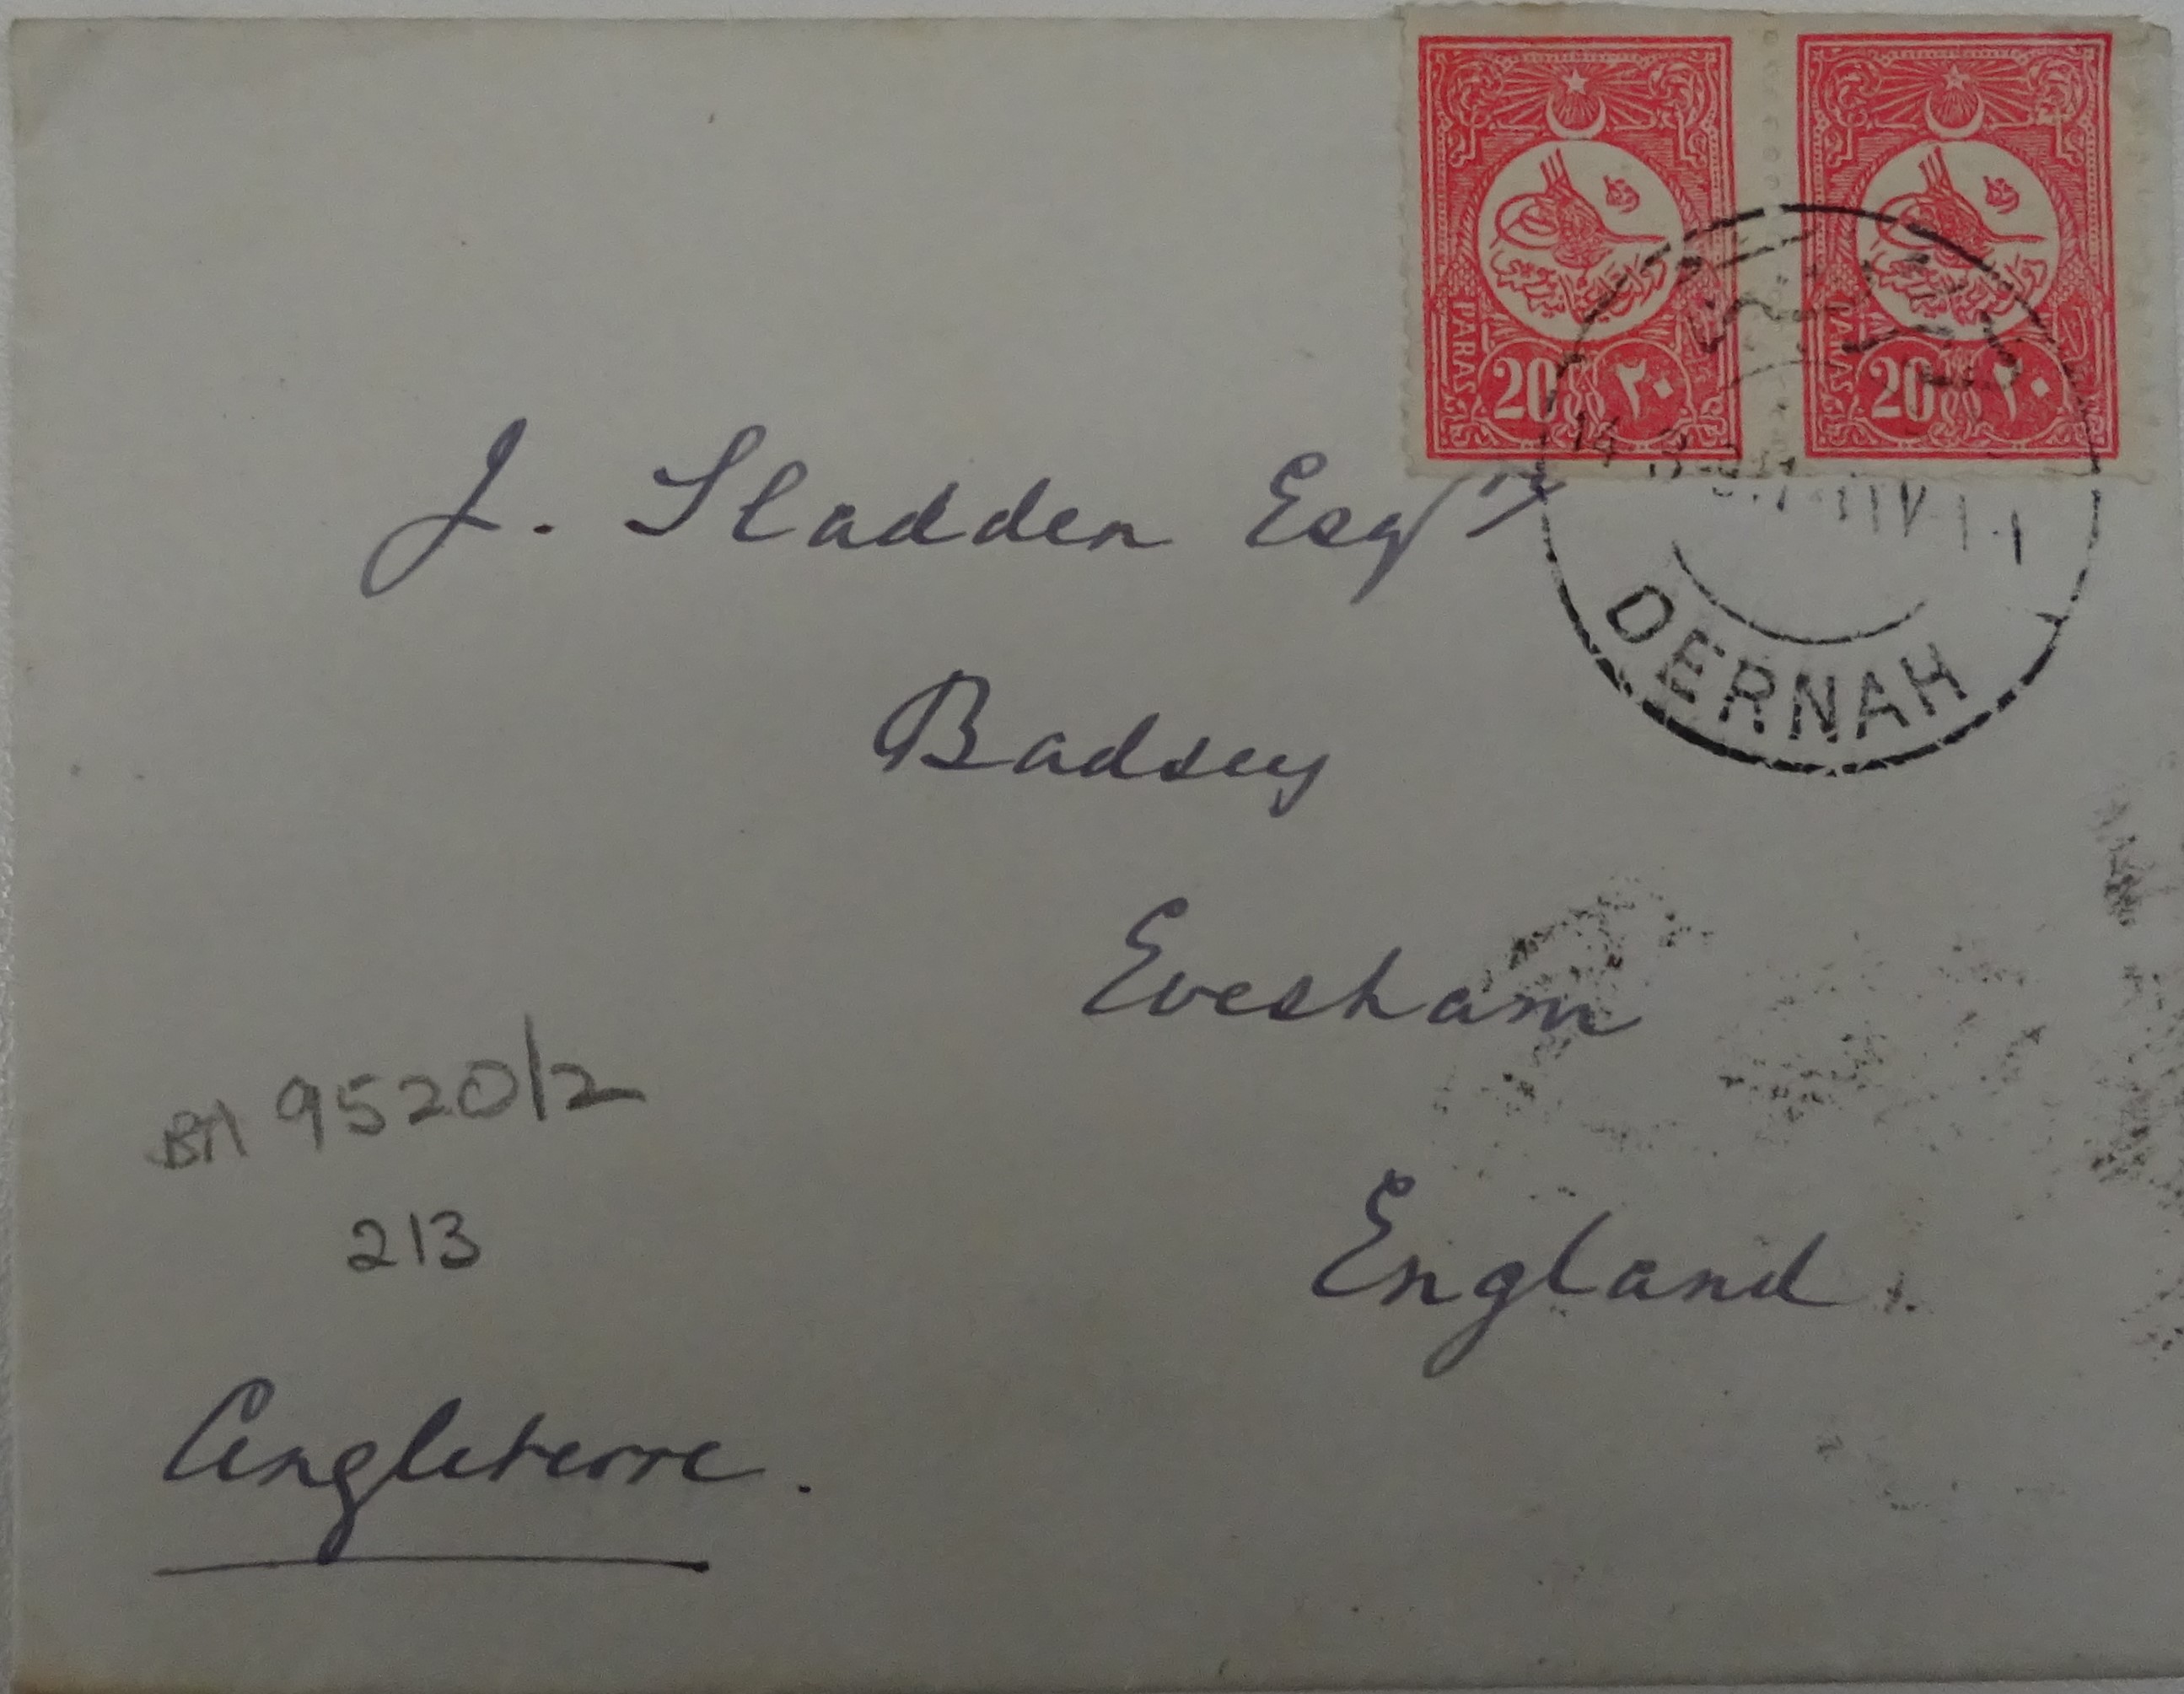 PARAS 20 ٢٠
PARAS 20 ٢٠
DERNAH
J. Sladden Esqre
Badsey
Evesham
England.
BA 9520/2
213
Angleterre.